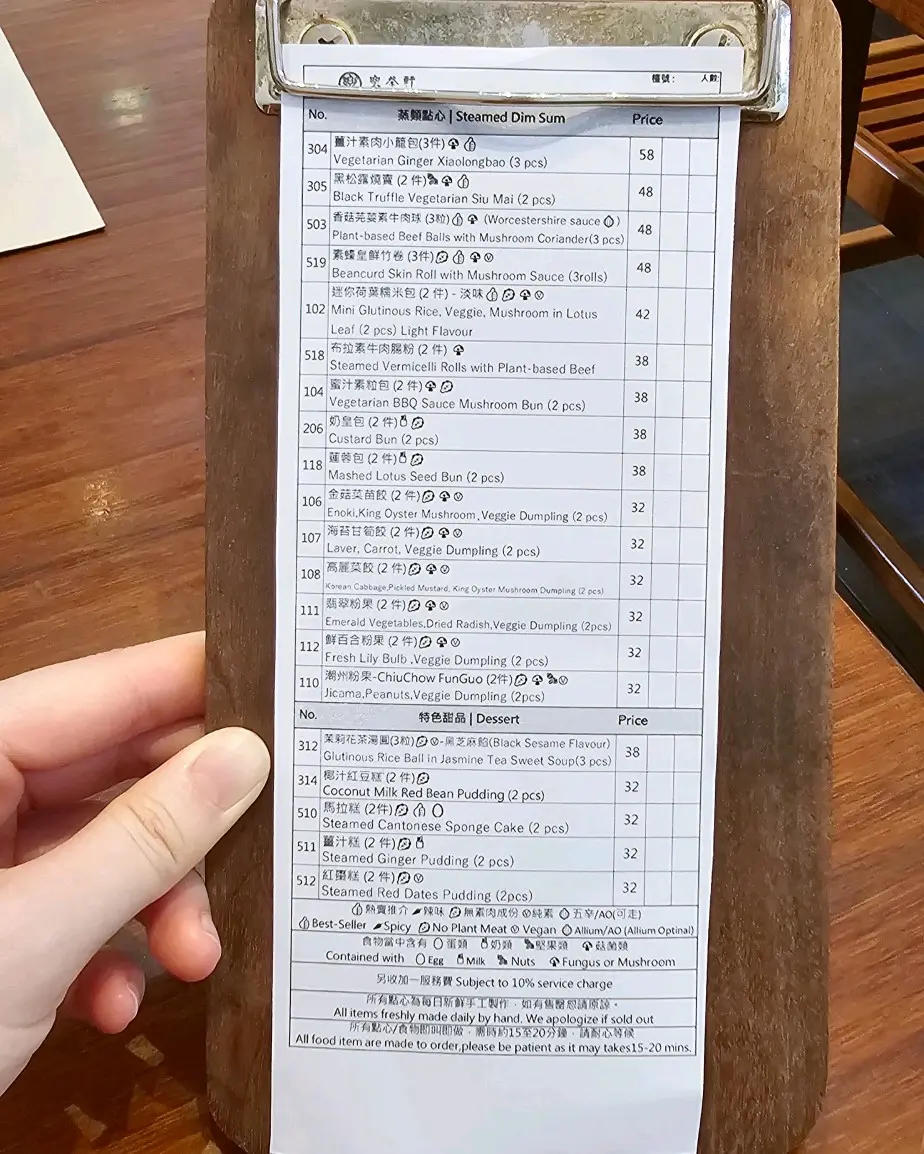 檯號： 人數
No. 蒸類點心 | Steamed Dim Sum Price
304 薑汁素肉小籠包(3件) 58
Vegetarian Ginger Xiaolongbao (3 pcs)
305 黑松露燒賣 (2 件) 48
Black Truffle Vegetarian Siu Mai (2 pcs)
503 香菇芫荽素牛肉球 (3粒) (Worcestershire sauce ) 48
Plant-based Beef Balls with Mushroom Coriander(3 pcs)
519 素蠔皇鮮竹卷 (3件) 48
Beancurd Skin Roll with Mushroom Sauce (3rolls)
102 迷你荷葉糯米包 (2 件) - 淡味 42
Mini Glutinous Rice, Veggie, Mushroom in Lotus
Leaf (2 pcs) Light Flavour
518 布拉素牛肉腸粉 (2 件) 38
Steamed Vermicelli Rolls with Plant-based Beef
104 蜜汁素粒包 (2 件) 38
Vegetarian BBQ Sauce Mushroom Bun (2 pcs)
206 奶皇包 (2 件) 38
Custard Bun (2 pcs)
118 蓮蓉包 (2 件) 38
Mashed Lotus Seed Bun (2 pcs)
106 金菇菜苗餃 (2 件) 32
Enoki,King Oyster Mushroom ,Veggie Dumpling (2 pcs)
107 海苔甘筍餃 (2 件) 32
Laver, Carrot, Veggie Dumpling (2 pcs)
108 高麗菜餃 (2 件) 32
Korean Cabbage,Pickled Mustard, King Oyster Mushroom Dumpling (2 pcs)
111 翡翠粉果 (2 件) 32
Emerald Vegetables,Dried Radish,Veggie Dumpling (2pcs)
112 鮮百合粉果 (2 件) 32
Fresh Lily Bulb ,Veggie Dumpling (2 pcs)
110 潮州粉果-ChiuChow FunGuo (2件) 32
Jicama,Peanuts,Veggie Dumpling (2pcs)
No. 特色甜品 | Dessert Price
312 茉莉花茶湯圓(3粒) -黑芝麻餡(Black Sesame Flavour) 38
Glutinous Rice Ball in Jasmine Tea Sweet Soup(3 pcs)
314 椰汁紅豆糕 (2 件) 32
Coconut Milk Red Bean Pudding (2 pcs)
510 馬拉糕 (2件) 32
Steamed Cantonese Sponge Cake (2 pcs)
511 薑汁糕 (2 件) 32
Steamed Ginger Pudding (2 pcs)
512 紅棗糕 (2 件) 32
Steamed Red Dates Pudding (2pcs)
熱賣推介 辣味 無素肉成份 純素 五辛/AO(可走)
Best-Seller Spicy No Plant Meat Vegan Allium/AO (Allium Optinal)
食物當中含有 蛋類 奶類 堅果類 菇菌類
Contained with Egg Milk Nuts Fungus or Mushroom
另收加一服務費 Subject to 10% service charge
所有點心為每日新鮮手工製作，如有售罄恕請原諒。
All items freshly made daily by hand. We apologize if sold out
所有點心/食物即叫即做，需時約15至20分鐘，請耐心等候
All food item are made to order,please be patient as it may takes15-20 mins.